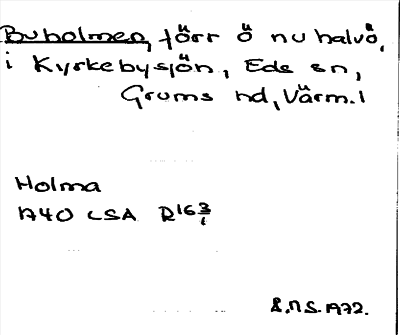 Buholmen, förr ö nu halvö,
i Kyrkebysjön, Eds sn,
Grums hd, Värm. l
Holma
1740 LSA R16 3/1
S.N.S. 1972.